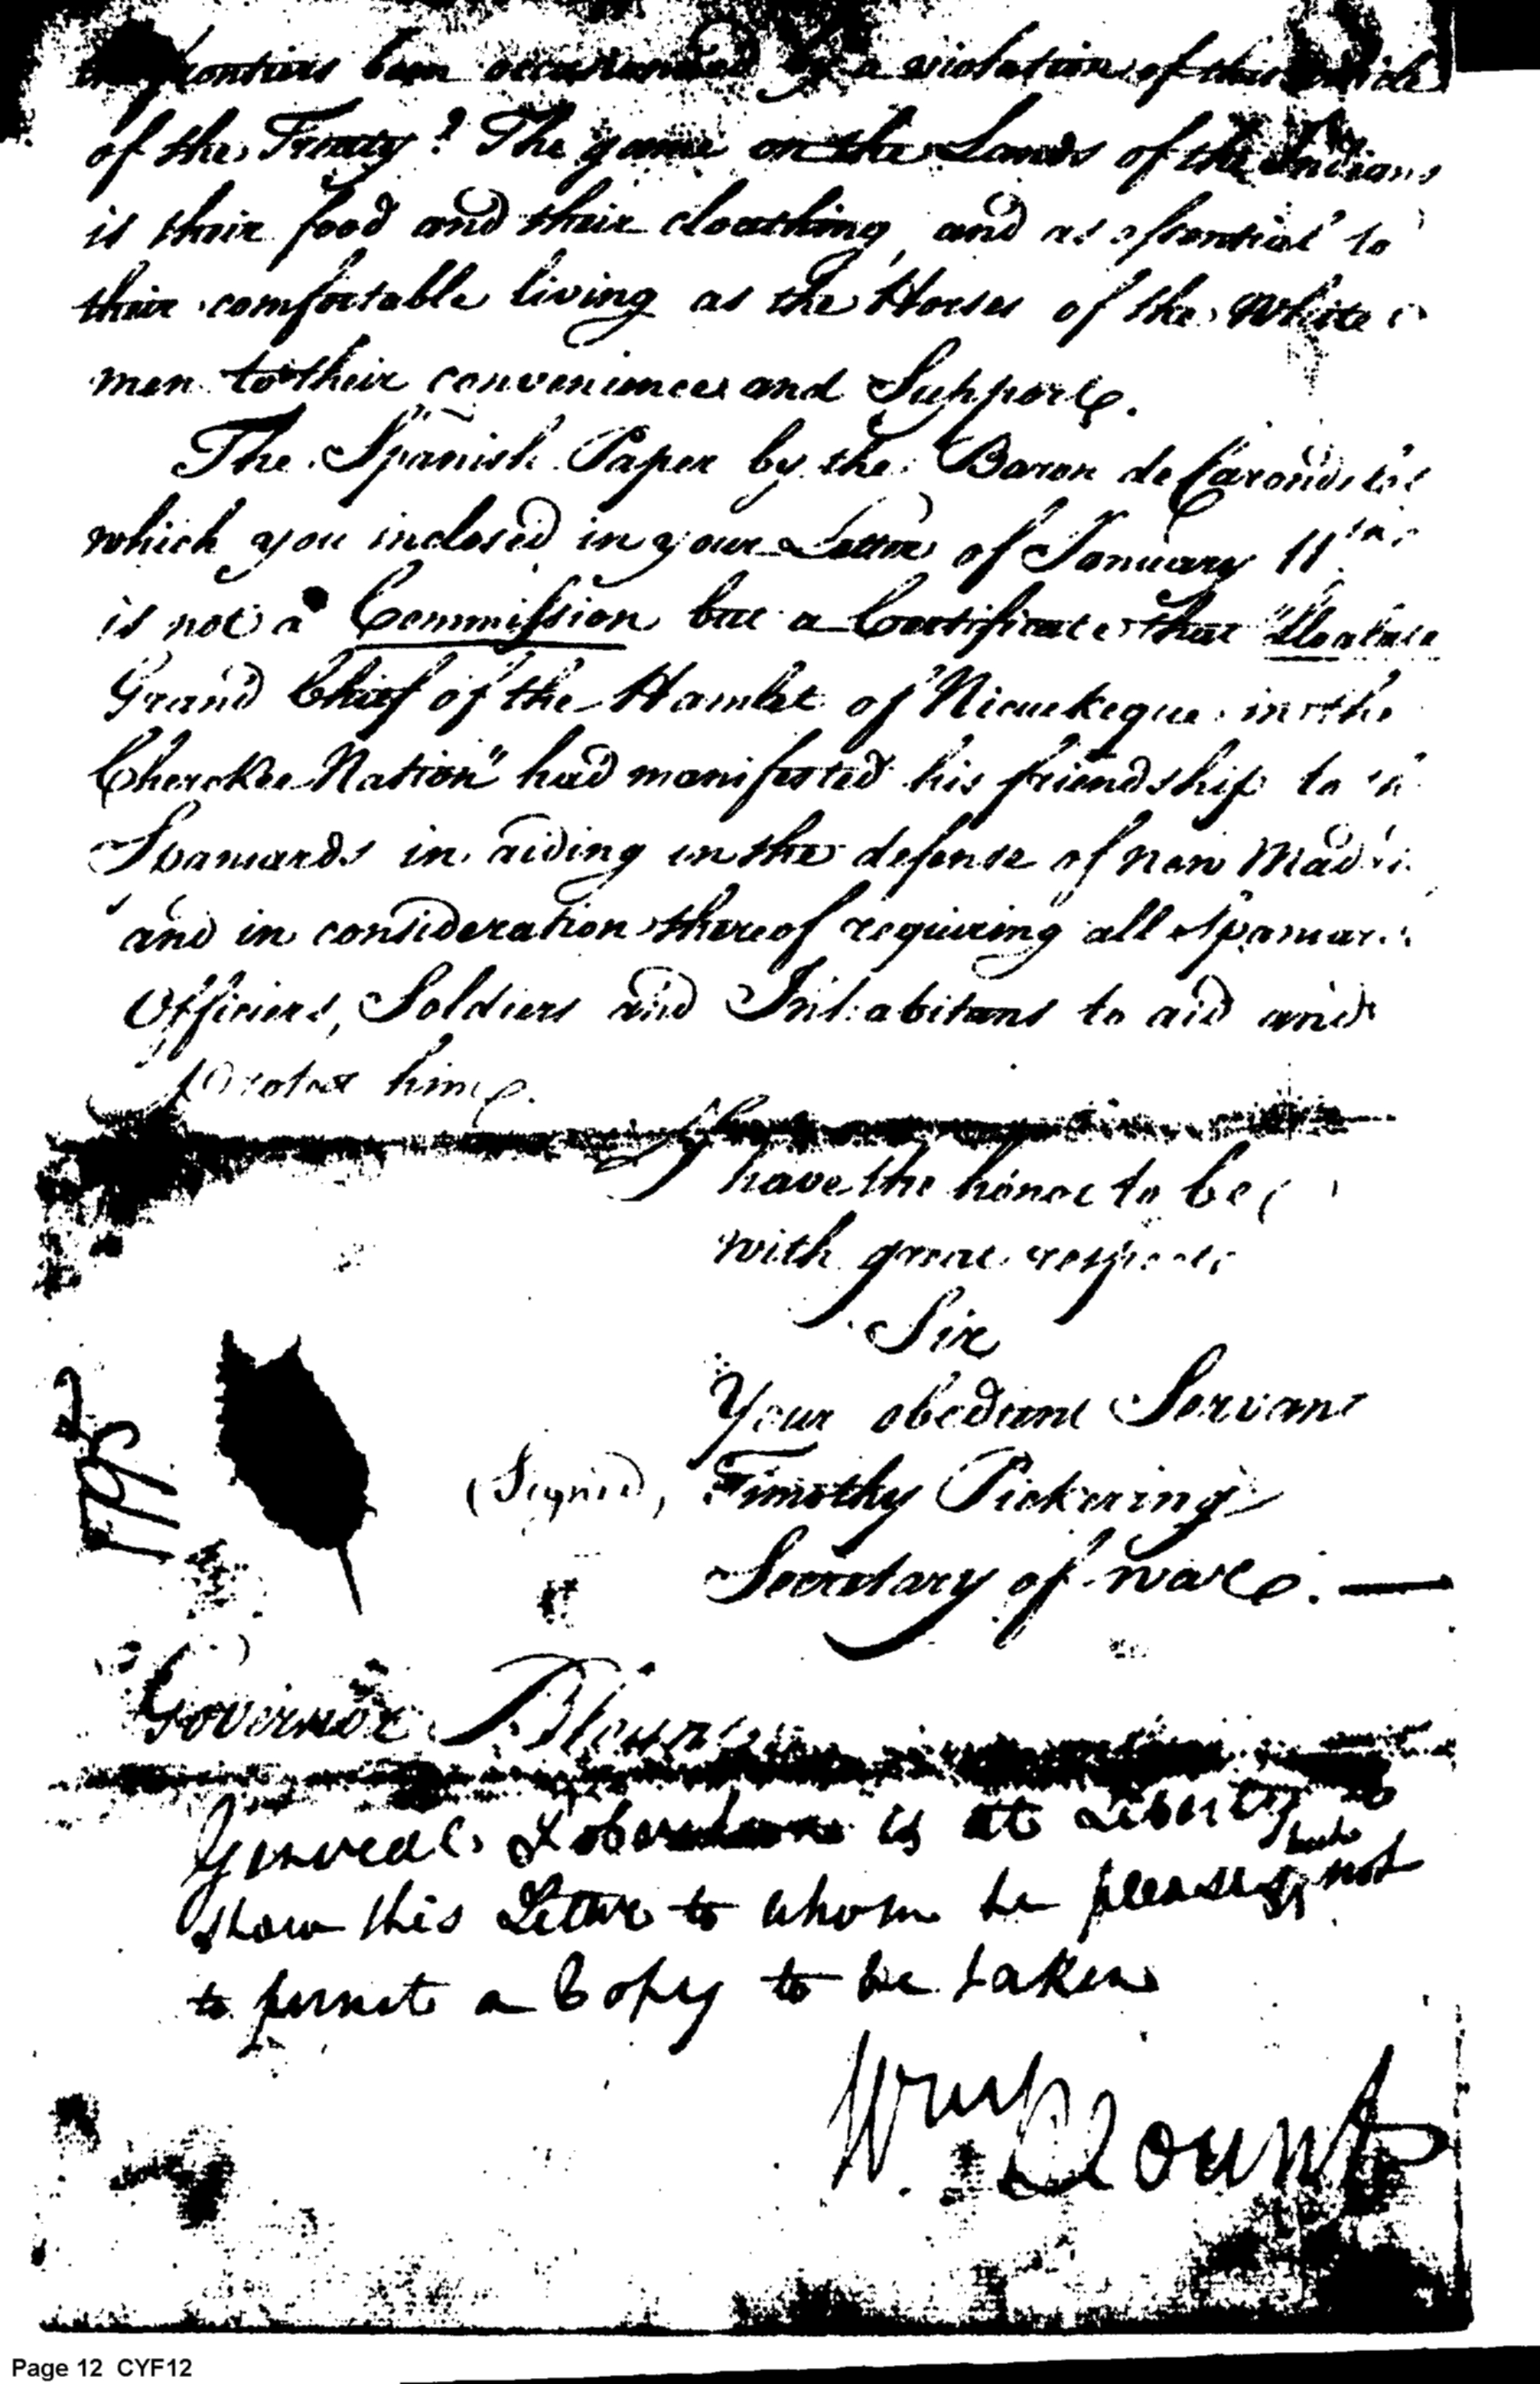 frontiers been occasioned by a violation of this article
of the Treaty? The game on the Lands of the Indians
is their food and their cloathing, and as essential to
their comfortable living as the Horses of the White
men to their convenience and Support.
The Spanish Paper by the Baron de Carondelet
which you inclosed in your Letter of January 11th
is not a Commission but a Certificate that "
Grand Chief of the Hamlet of Nicuekeque in the
Cherokee Nation" had manifested his friendship to
Spaniards in aiding in the defense of new Madrid
and in consideration thereof requiring all Spaniards
Officers, Soldiers and Inhabitans to aid and
protect him.
I have the honor to be,
with great respect,
Sir
Your obedient Servant
(Signed, Timothy Pickering
Secretary of war.
1795
Governor Blount
General is at Liberty to
show this Letter to whom he pleases, but not
to permit a Copy to be taken
Wm Blount
Page 12 CYF12